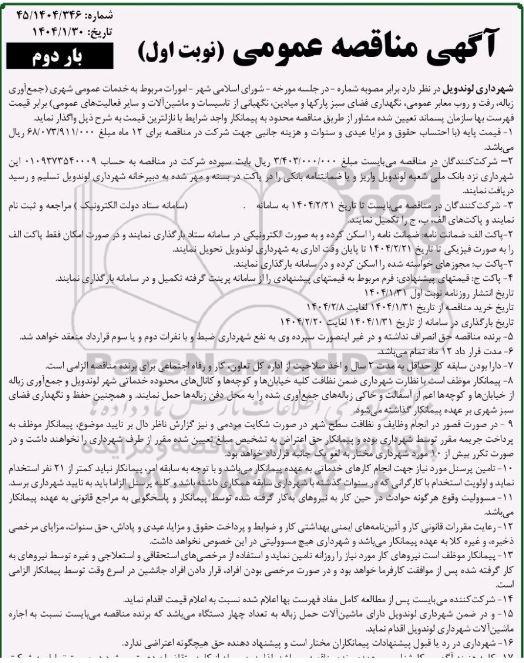 شماره: ۴۵/۱۴۰۴/۳۴۶
تاریخ: ۱۴۰۴/۱/۳۰
آگهی مناقصه عمومی (نوبت اول)
بار دوم
شهرداری لوندویل در نظر دارد برابر مصوبه شماره - در جلسه مورخه - شورای اسلامی شهر - امورات مربوط به خدمات عمومی شهری (جمع‌آوری
زباله، رفت و روب معابر عمومی، نگهداری فضای سبز پارکها و میادین، نگهبانی از تاسیسات و ماشین‌آلات و سایر فعالیت‌های عمومی) برابر قیمت
فهرست بها سازمان پسماند تعیین شده مشاور از طریق مناقصه محدود به پیمانکار واجد شرایط با نازلترین قیمت به شرح ذیل واگذار نماید.
۱- قیمت پایه (با احتساب حقوق و مزایا عیدی و سنوات و هزینه جانبی جهت شرکت در مناقصه برای ۱۲ ماه مبلغ ۶۸/۰۷۳/۹۱۱/۰۰۰ ریال
می‌باشد.
۲- شرکت‌کنندگان در مناقصه می‌بایست مبلغ ۳/۴۰۳/۰۰۰/۰۰۰ ریال بابت سپرده شرکت در مناقصه به حساب ۰۱۰۹۳۷۳۵۴۰۰۰۹ این
شهرداری نزد بانک ملی شعبه لوندویل واریز و یا ضمانتنامه بانکی را در پاکت در بسته و مهر شده به دبیرخانه شهرداری لوندویل تسلیم و رسید
دریافت نمایند.
۳- شرکت‌کنندگان در مناقصه می‌بایست تا تاریخ ۱۴۰۴/۲/۲۱ به سامانه (سامانه ستاد دولت الکترونیک) مراجعه و ثبت نام
نمایند و پاکت‌های الف، ب، ج را تکمیل نمایند.
۲-پاکت الف: ضمانت نامه ضمانت نامه را اسکن کرده و به صورت الکترونیکی در سامانه ستاد بارگذاری نمایند و در صورت امکان فقط پاکت الف
را به صورت فیزیکی تا تاریخ ۱۴۰۴/۲/۲۱ تا پایان وقت اداری به شهرداری لوندویل تحویل نمایند.
۳-پاکت ب: مجوزهای خواسته شده را اسکن کرده و در سامانه بارگذاری نمایند.
۴- پاکت ج: قیمتهای پیشنهادی: فرم مربوط به قیمتهای پیشنهادی را از سامانه پرینت گرفته تکمیل و در سامانه بار گذاری نمایند.
تاریخ انتشار روزنامه نوبت اول ۱۴۰۴/۱/۳۱
تاریخ خرید مناقصه از تاریخ ۱۴۰۴/۱/۳۱ لغایت ۱۴۰۴/۲/۸
تاریخ بارگذاری در سامانه از تاریخ ۱۴۰۴/۱/۳۱ لغایت ۱۴۰۴/۲/۲۰
۵- برنده مناقصه حق انصراف نداشته و در غیر اینصورت سپرده وی به نفع شهرداری ضبط و با نفرات دوم و یا سوم قرارداد منعقد خواهد شد.
۶- مدت قرار داد ۱۲ ماه تمام می‌باشد.
۷- دارا بودن سابقه کار حداقل به مدت ۲ سال و اخذ صلاحیت از اداره کل تعاون، کار و رفاه اجتماعی برای برنده مناقصه الزامی است.
۸- پیمانکار موظف است با نظارت شهرداری ضمن نظافت کلیه خیابان‌ها و کوچه‌ها و کانال‌های محدوده خدماتی شهر لوندویل و جمع‌آوری زباله
از خیابان‌ها و کوچه‌ها اعم از آسفالت و خاکی زباله‌های جمع‌آوری شده را به محل دفن زباله‌ها حمل نمایند. و همچنین حفظ و نگهداری فضای
سبز شهری بر عهده پیمانکار گذاشته می‌شود.
۹ - در صورت قصور در انجام وظایف و نظافت سطح شهر در صورت شکایت مردمی و نیز گزارش ناظر دال بر تایید موضوع، پیمانکار موظف به
پرداخت جریمه مقرر توسط شهرداری بوده و پیمانکار حق اعتراض به تشخیص مبلغ تعیین شده مقرر از طرف شهرداری را نخواهند داشت و در
صورت تکرر بیش از ۱۰ مورد شهرداری مختار به لغو یک جانبه قرارداد خواهد بود.
۱۰- تامین پرسنل مورد نیاز جهت انجام کارهای خدماتی به عهده پیمانکار می‌باشد و با توجه به سابقه امر، پیمانکار نباید کمتر از ۲۱ نفر استخدام
نماید و اولویت استخدام با کارگرانی که در سنوات گذشته با شهرداری سابقه همکاری داشته باشد و کلیه پرسنل الزاما باید به تایید شهرداری برسد.
۱۱- مسوولیت وقوع هرگونه حوادث در حین کار به نیروهای به‌کار گرفته شده توسط پیمانکار و پاسخگویی به مراجع قانونی به عهده پیمانکار
می‌باشد.
۱۲- رعایت مقررات قانونی کار و آئین‌نامه‌های ایمنی بهداشتی کار و ضوابط و پرداخت حقوق و مزایا، عیدی و پاداش، حق سنوات، مزایای مرخصی
ذخیره، و غیره کلا به عهده پیمانکار می‌باشد و شهرداری هیچ مسوولیتی در این خصوص نخواهد داشت.
۱۳- پیمانکار موظف است نیروهای کار مورد نیاز را روزانه تامین نماید و استفاده از مرخصی‌های استحقاقی و استعلاجی و غیره توسط نیروهای به
کار گرفته شده پس از موافقت کارفرما خواهد بود و در صورت مرخصی بودن افراد، قرار دادن افراد جانشین در اسرع وقت توسط پیمانکار الزامی
است.
۱۴- شرکت‌کننده می‌بایست پس از مطالعه کامل مفاد فهرست بها اعلام شده نسبت به اعلام قیمت اقدام نماید.
۱۵- و در ضمن شهرداری لوندویل دارای ماشین‌آلات حمل زباله به تعداد چهار دستگاه می‌باشد که برنده مناقصه می‌بایست نسبت به اجاره
ماشین‌آلات شهرداری لوندویل اقدام نماید.
۱۶- شهرداری در رد یا قبول پیشنهادات پیمانکاران مختار است و پیشنهاد دهنده حق هیچگونه اعتراضی ندارد.